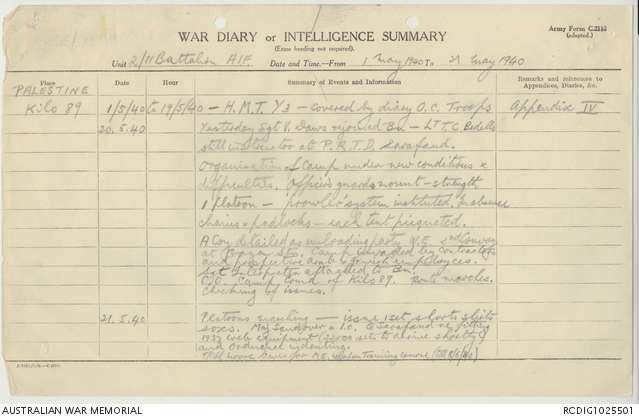 Army Form C.2118
(adapted.)
WAR DIARY or INTELLIGENCE SUMMARY
(Erase heading not required).
Unit 2/11 Battalion AIF. Date and Time—From 1 May 1940 To 31 May 1940
Place
Date
Hour
Summary of Events and Information
Remarks and references to Appendices, Diaries, &c.
PALESTINE
Kilo 89 1/5/40 to 19/5/40 - H.M.T. Y3 - covered by diary O.C. Troops Appendix IV
20.5.40 Yesterday Sgt V. Daws rejoined Bn - LT T.C. Bedells
still instructor at P.R.T.D. Sarafand.
Organisation of Camp under new conditions &
difficulties. Officers guards mount - strength
1 platoon - 'prowler' system instituted. In absence
chains & padlocks - each tent picqueted.
A Coy detailed as unloading party W.E. 2nd Convoy
at Station. Camp invaded by contractors
and prospective employees.
Sgt Interpreter attached to Bn.
C.O. Camp Comd of Kilo 89. Route marches.
Checking of issues.
21.5.40 Platoons marching - issue 1 set shorts shirts
soxs. Maj Sandover & to Sarafand re fitting
1937 web equipment
and Ordnance indenting.
leaves for M.E. Weapon Training
AUSTRALIAN WAR MEMORIAL
RCDIG1025501